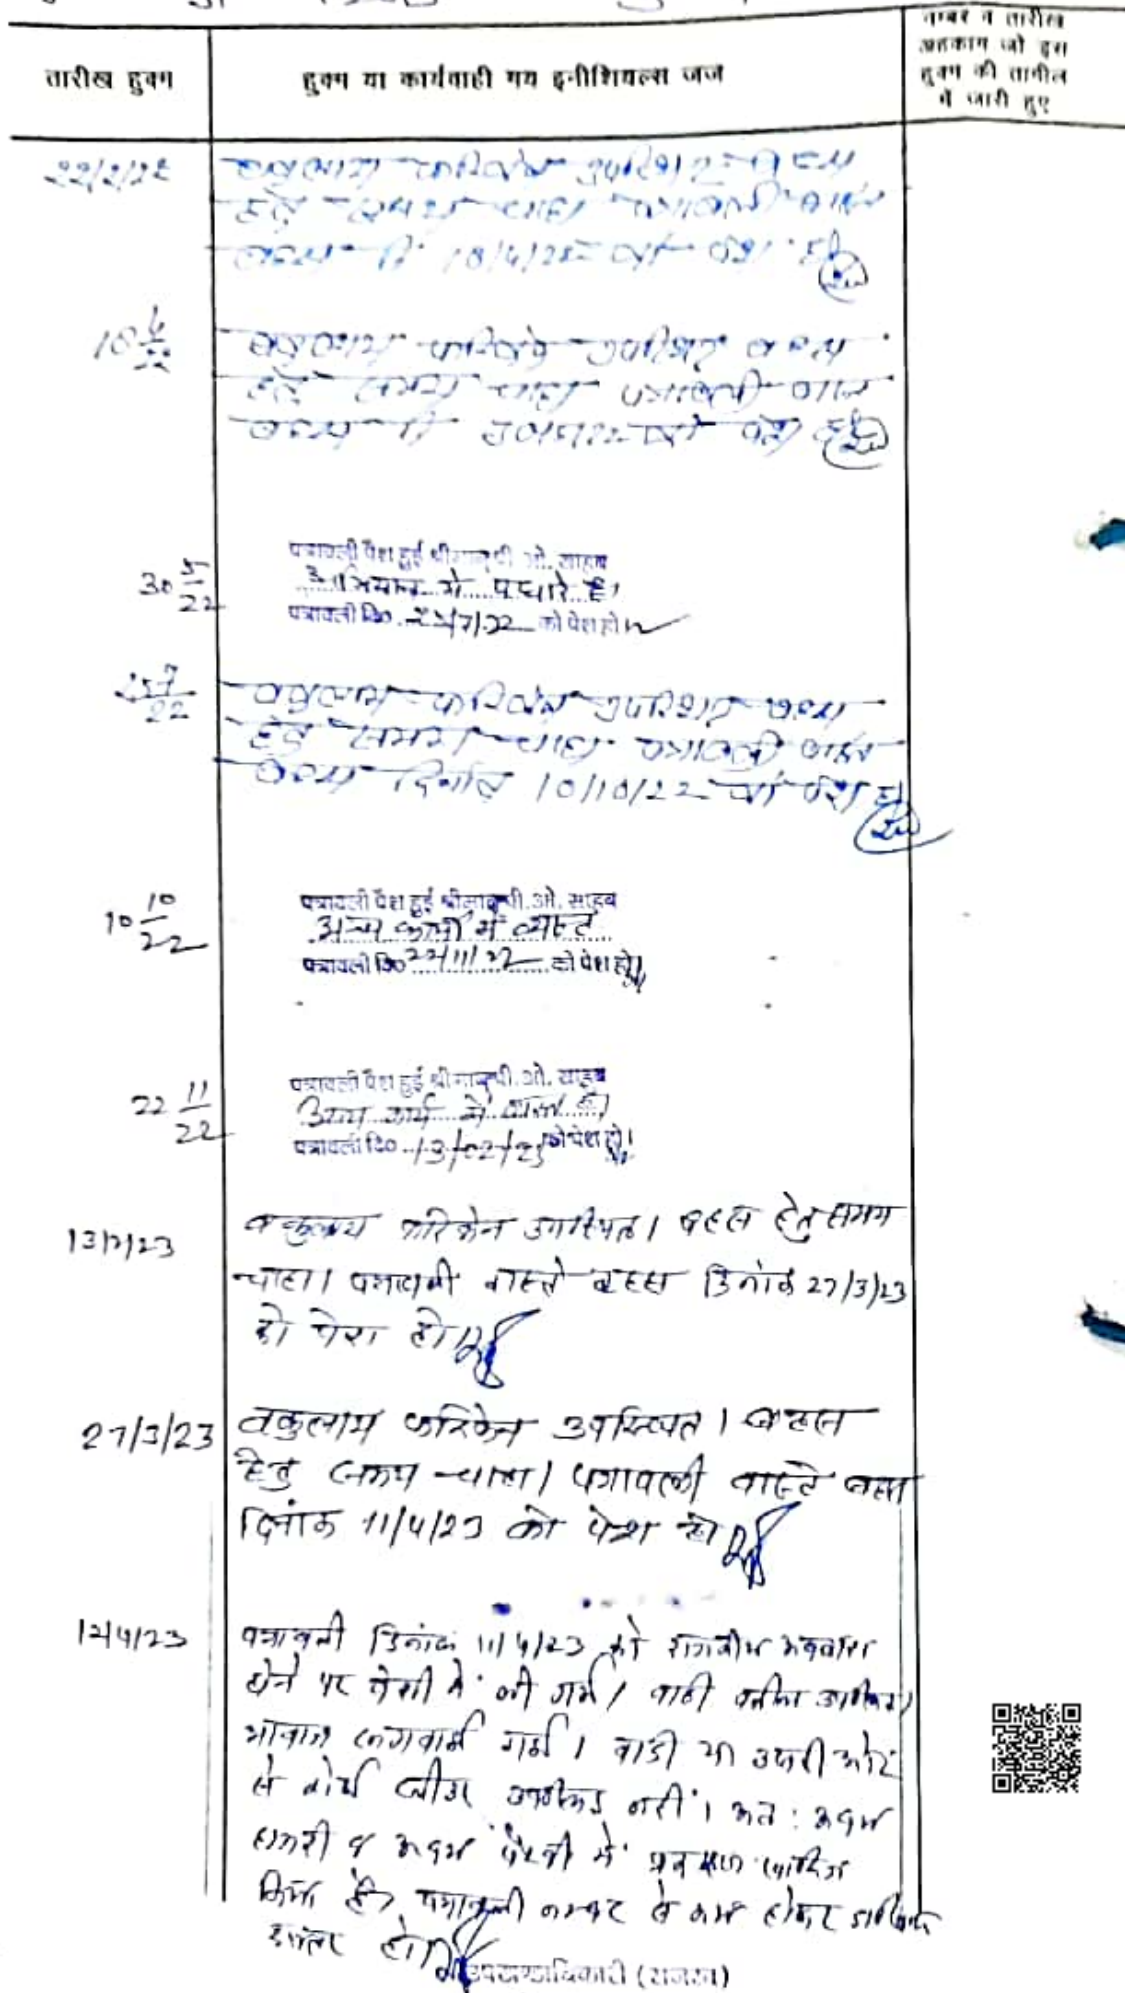 नम्बर व तारीख
अहकाम जो इस
तारीख हुक्म हुक्म या कार्यवाही मय इनीशियल्स जज हुक्म की तामील
में जारी हुए
22/2/22 वकुलाय फरिकेन उपस्थित बहस
हेतु समय चाहा पत्रावली वास्ते
बहस दि 18/4/22 को पेश हो
18 4/22 वकुलाय फरिकेन उपस्थित बहस
हेतु समय चाहा पत्रावली वास्ते
बहस दि 30/5/22 को पेश हो
पत्रावली पेश हुई श्रीमान् पी. ओ. साहब
30 5/22 अभियान में पधारे है।
पत्रावली दि० /7/22 को पेश हो
25 7/22 वकुलाय फरिकेन उपस्थित बहस
हेतु समय चाहा पत्रावली वास्ते
बहस दिनांक 10/10/22 को पेश हो
पत्रावली पेश हुई श्रीमान् पी. ओ. साहब
10 10/22 अन्य कार्यो में व्यस्त
पत्रावली दि० 22/11/22 को पेश हो।
पत्रावली पेश हुई श्रीमान् पी. ओ. साहब
22 11/22 अन्य कार्य में व्यस्त है।
पत्रावली दि० 13/02/23 को पेश हो।
13/2/23 वकुलाय फरिकेन उपस्थित। बहस हेतु समय
चाहा। पत्रावली वास्ते बहस दिनांक 27/3/23
को पेश हो।
27/3/23 वकुलाय फरिकेन उपस्थित। बहस
हेतु समय चाहा। पत्रावली वास्ते बहस
दिनांक 11/4/23 को पेश हो
12/4/23 पत्रावली दिनांक 11/4/23 को राजकीय अवकाश
होने पर पेशी में ली गई। वादी वकील
आवाज लगवाई गई। वादी या उसकी ओर
से कोई प्लीडर उपस्थित नहीं। अत: अदम
हाजरी व अदम पैरवी में प्रकरण खारिज
किया है। पत्रावली नम्बर से कम होकर दाखिल
दफ्तर हो।
उपखण्डाधिकारी (राजस्व)